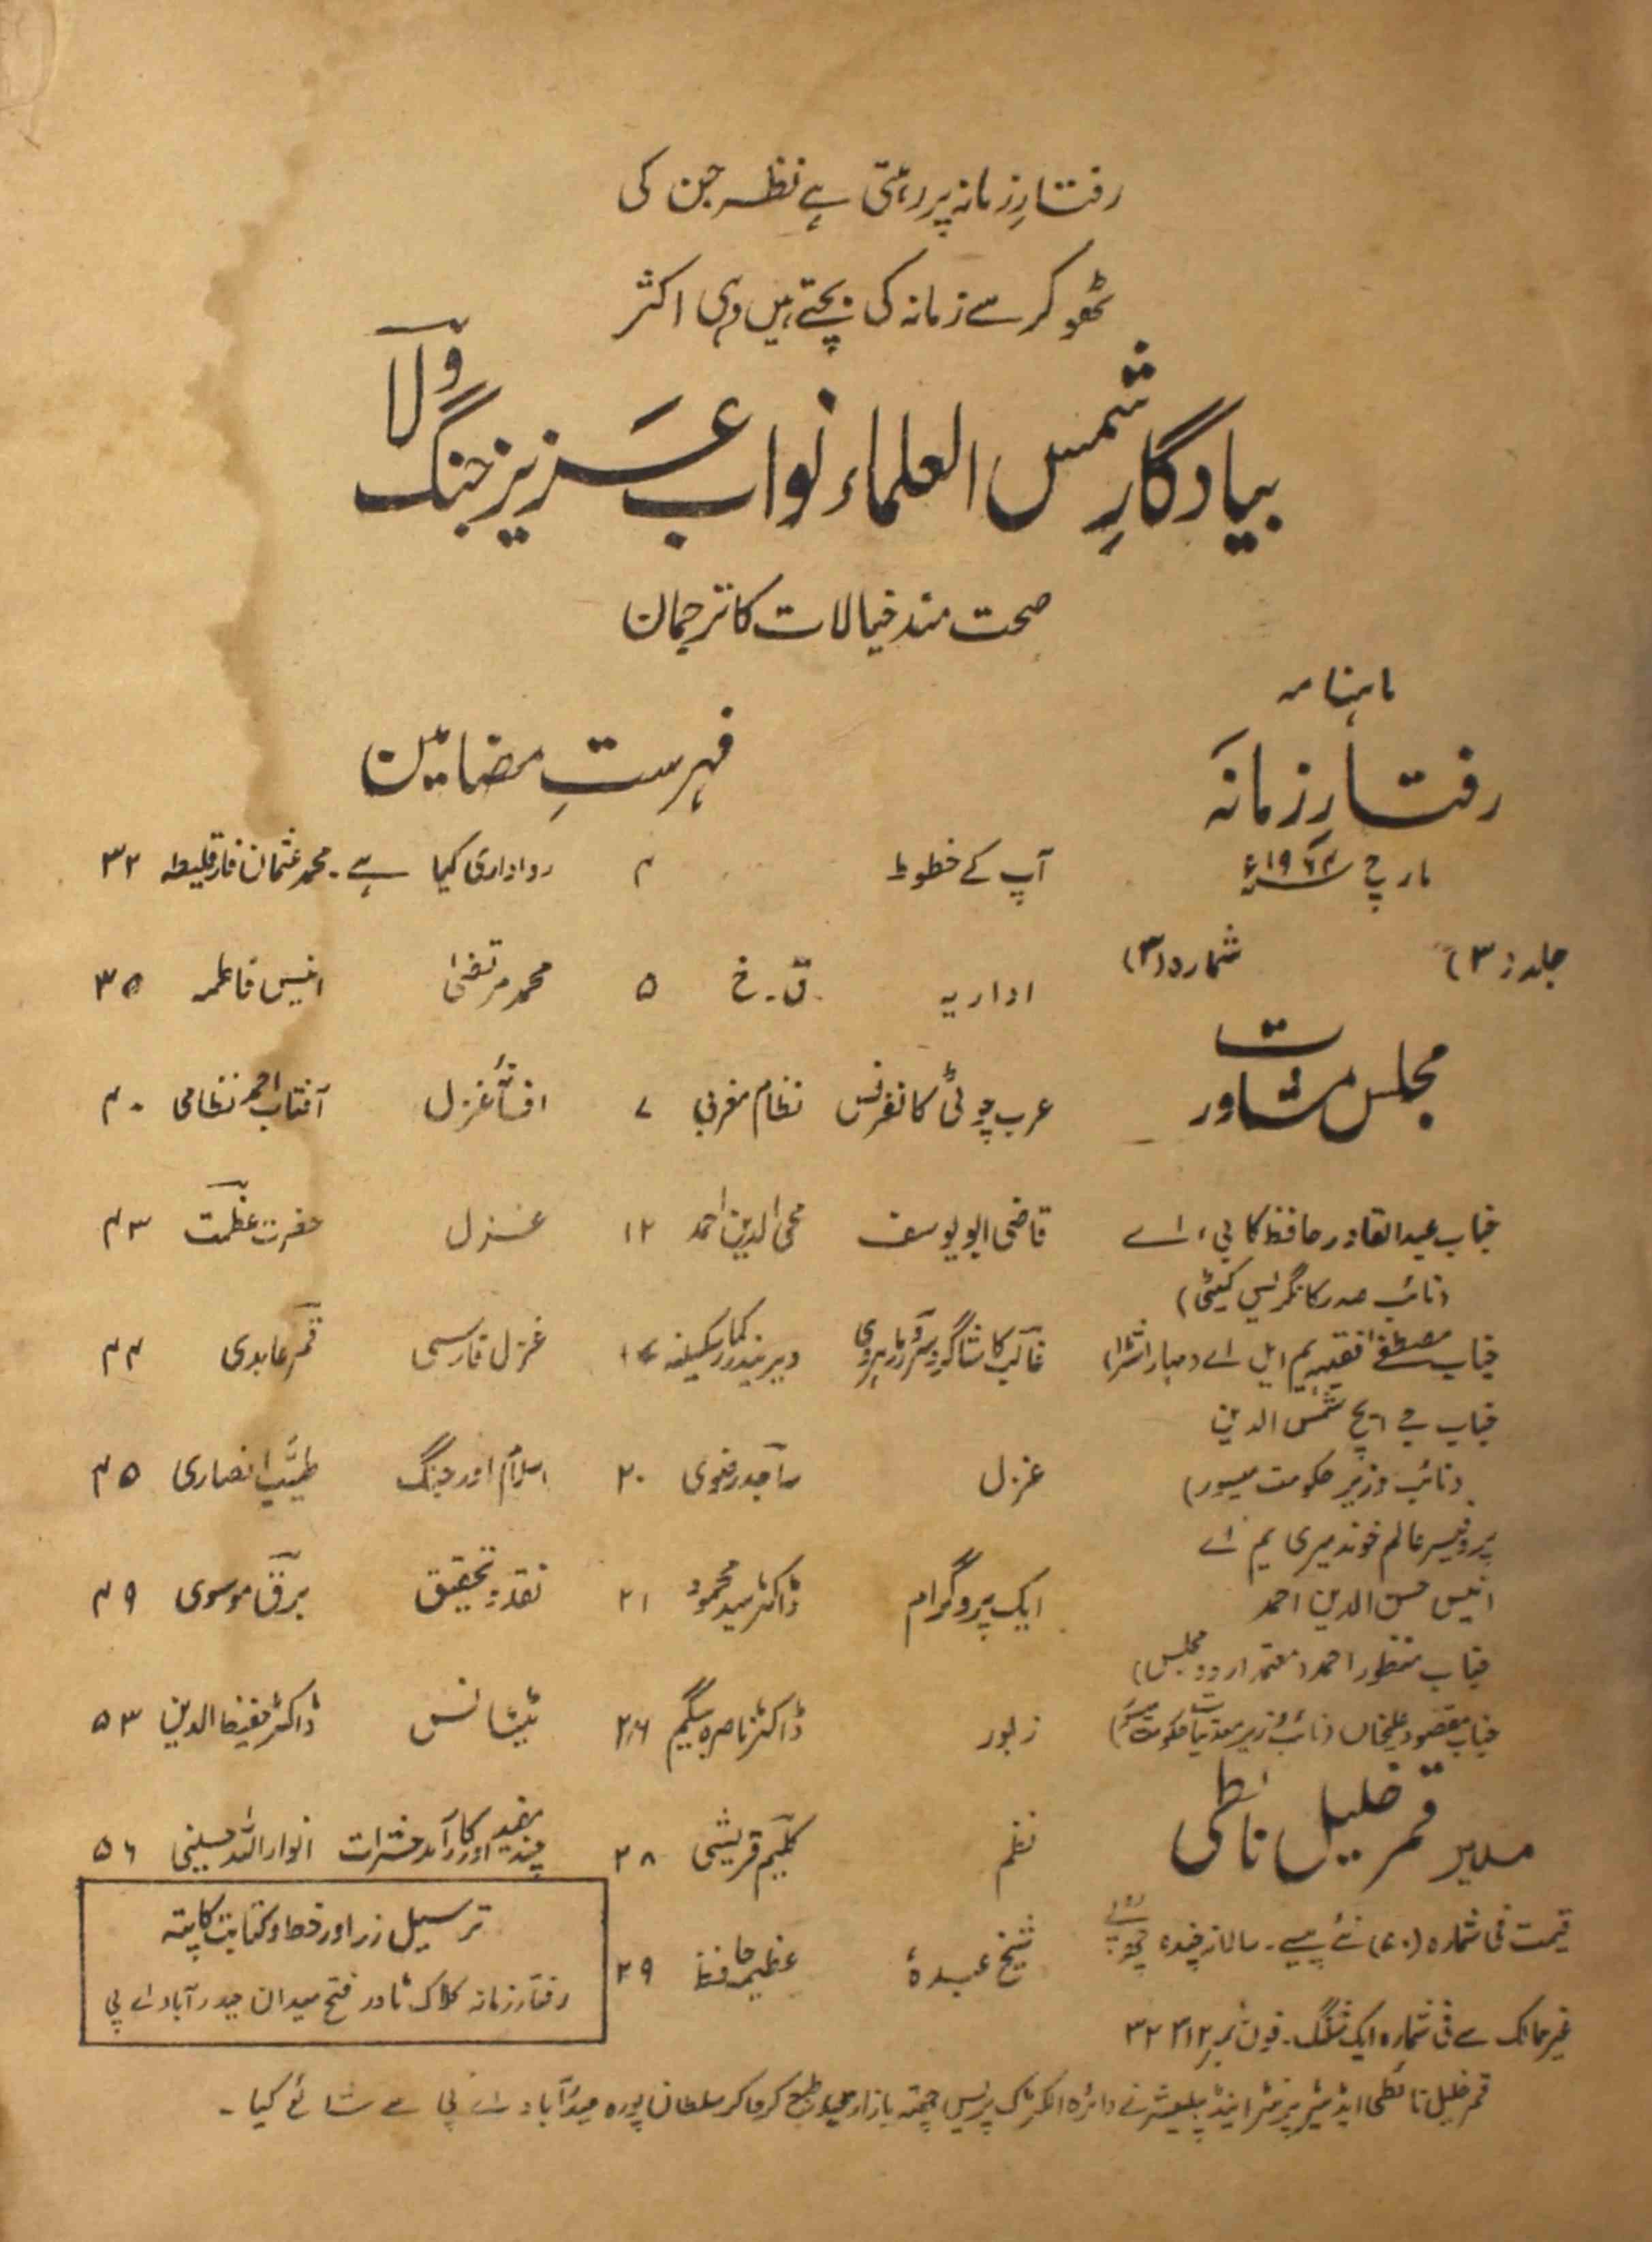 رفتارِ زمانہ پر رہتی ہے نظر جن کی
ٹھوکر سے زمانہ کی بچتے ہیں وہی اکثر
بیادگارِ شمس العلماء نواب عزیز جنگ ولا
صحت مند خیالات کا ترجمان
ماہنامہ
رفتارِ زمانہ
مارچ ۱۹۶۴ء
جلد (۳) شمارہ (۳)
مجلس مشاورت
جناب عبدالقادر حافظ کا بی، اے
(نائب صدر کانگریس کمیٹی)
جناب مصطفےٰ فقیہہ یم ایل اے (مہاراشٹرا)
جناب جے ایچ شمس الدین
(نائب وزیر حکومت میسور)
پروفیسر عالم خوندمیری یم اے
انیس حسن الدین احمد
جناب منظور احمد (معتمد اردو مجلس)
جناب مقصود علیخاں (نائب وزیر معدنیات حکومت میسور)
مدیر قمر خلیل نائطی
قیمت فی شمارہ (۶۰) نئے پیسے۔ سالانہ چندہ چھ روپے
غیر ممالک سے فی شمارہ ایک شلنگ۔ فون نمبر ۳۲۴۱۲
فہرستِ مضامین
آپ کے خطوط ۴
اداریہ ق۔خ ۵
عرب چوٹی کانفرنس نظام مغربی ۷
قاضی ابو یوسف محی الدین احمد ۱۲
غالب کا شاگرد سرور مارہروی ویریندر کمار سکسینہ
غزل ساجد رضوی ۲۰
ایک پروگرام ڈاکٹر سید محمود ۲۱
زلور ڈاکٹر ناصرہ بیگم ۲۶
نظم کلیم قریشی ۲۸
شیخ عبدہٗ عظیم حافظ ۲۹
رواداری کیا ہے۔ محمد عثمان فارقلیطہ ۳۲
محمد مرتضیٰ انیس فاطمہ ۳۵
افسانۂ غزل آفتاب احمد نظامی ۴۰
غزل حضرت عظمت ۴۳
غزل فارسی قمر عابدی ۴۴
اسلام اور جنگ طیب انصاری ۴۵
نقد و تحقیق برق موسوی ۴۹
ٹیٹانس ڈاکٹر حفیظ الدین ۵۳
چند مفید اور کارآمد حشرات انوار اللہ حسینی ۵۶
ترسیل زر اور خط و کتابت کا پتہ
رفتار زمانہ کلاک ٹاور فتح میدان حیدرآباد اے پی
قمر خلیل نائطی ایڈیٹر پرنٹر اینڈ پبلیشر نے دائرہ الکٹرک پریس چھتہ بازار میں طبع کرواکر سلطان پورہ حیدرآباد اے پی سے شائع کیا۔